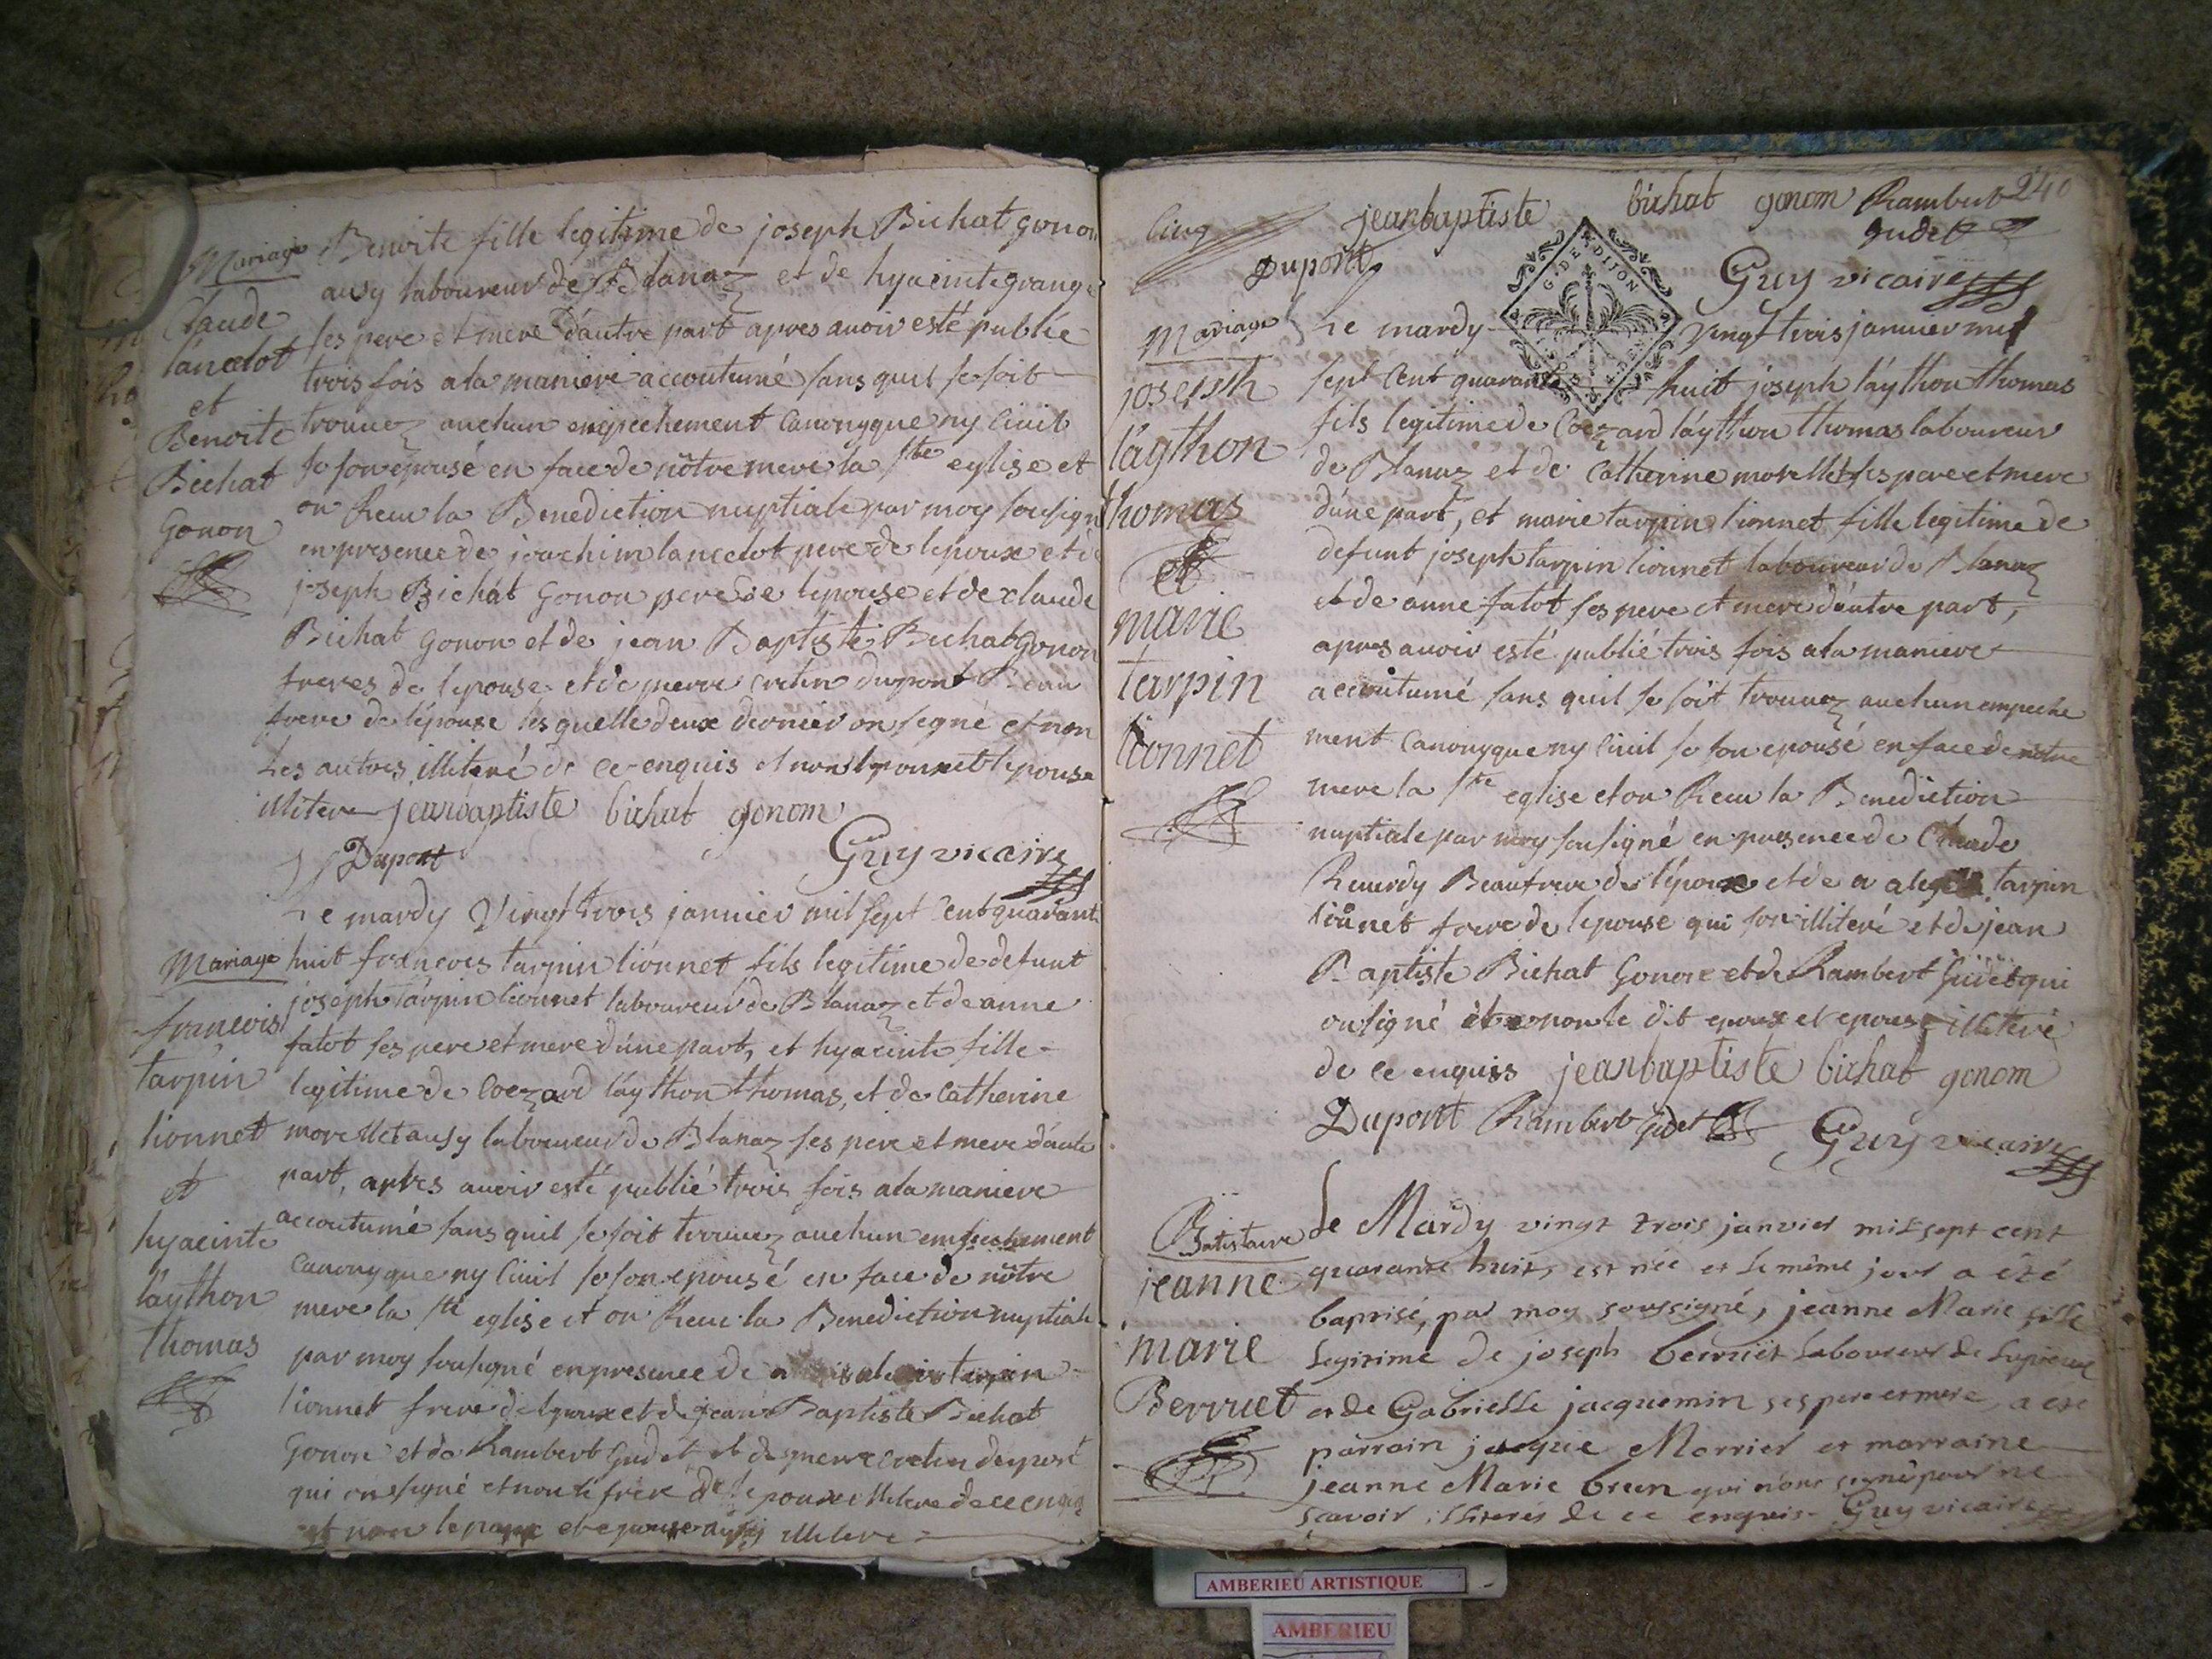 Mariage
Claude
lancelot
et
Benoite
Bichat
Gonon
Benoite fille legitime de joseph Bichat Gonon
ausy laboureur de Blanaz et de hyacinte grange
ses pere et mere d'autre part apres avoir esté publié
trois fois a la maniere accoutumé sans quil se soit
trouvez auchun empechement Canonyque ny Civil
se son epousé en face de nôtre mere la ste eglise et
on Receu la Benediction nuptiale par moy sousign
en presence de joachim lancelot pere de lepoux et de
joseph Bichat Gonon pere de lepouse et de claude
Bichat Gonon et de jean Baptiste Bichat Gonon
freres de lepouse et de pierre cretin dupont
frere de lépouse lesquelle deux dernier on segné et non
Les autres illiteré de ce enquis et non lepoux et lepouse
illitere jeanbaptiste bichat gonom
Dupont Guy vicaire
Mariage
françois
tarpin
lionnet
et
hyacinte
laython
thomas
Le mardy Vingt trois janvier mil sept Cent quarant
huit françois tarpin lionnet fils legitime de defunt
joseph tarpin lionnet laboureur de Blanaz et de anne
falot ses pere et mere d'une part, et hyacinte fille
legitime de Coezard laython thomas, et de Catherine
morellet ausy laboureur de Blanaz ses pere et mere d'aute
part, apres avoir esté publié trois fois a la maniere
accoutumé sans quil se soit trouvez auchun empechement
Canonyque ny Civil se son epousé en face de nôtre
mere la ste eglise et on Receu la Benediction nuptiale
par moy sousigné en presence de tarpin
lionnet frere de lepoux et de jean Baptiste Bichat
Gonon et de Rambert Gudet et de pierre cretin dupont
qui on signé et non le frere de lepoux illitere de ce enquis
et non lepoux et epouse ausy illitere
240
Cinq jeanbaptiste bichat gonom Rambert
gudet
Dupont Guy vicaire
G. DE DIJON
Mariage
joseph
laython
thomas
et
marie
tarpin
lionnet
Le mardy Vingt trois janvier mil
sept Cent quarante huit joseph laython thomas
fils legitime de Coezard laython thomas laboureur
de Blanaz et de Catherine morellet ses pere et mere
d'une part, et marie tarpin lionnet fille legitime de
defunt joseph tarpin lionnet laboureur de Blanaz
et de anne falot ses pere et mere d'autre part,
apres avoir esté publié trois fois a la maniere
accoutumé sans quil se soit trouvez auchun empeche
ment Canonyque ny Civil se son epousé en face de notre
mere la ste eglise et on Receu la Benediction
nuptiale par moy sousigné en presence de Claude
Beaufrere de lépoux et de tarpin
lionnet frere de lepouse qui son illiteré et de jean
Baptiste Bichat Gonon et de Rambert Gudet qui
on signé et non le dit epoux et epouse illiteré
de ce enquis jeanbaptiste bichat gonom
Dupont Rambert gudet Guy vicaire
Batistaire
jeanne
marie
Berruet
Le Mardy vingt trois janvier mil sept cent
quarante huit, est née et le même jour a été
baptisé, par moy soussigné, jeanne Marie fille
Legitime de joseph berruet Laboureur de
et de Gabrielle jacquemin ses pere et mere, a été
parrain jacque Morrier et marraine
jeanne Marie brun qui n'ont signé pour ne
sçavoir illiterés de ce enquis Guy vicaire
AMBERIEU ARTISTIQUE
AMBERIEU